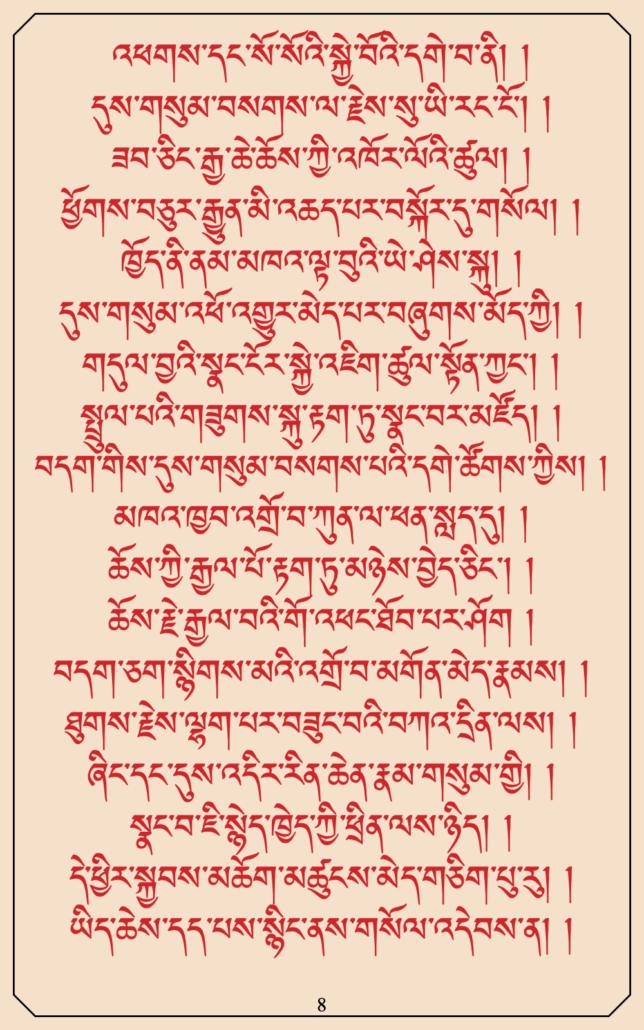 འཕགས་དང་སོ་སོའི་སྐྱེ་བོའི་དགེ་བ་ནི། །
དུས་གསུམ་བསགས་ལ་རྗེས་སུ་ཡི་རང་ངོ། །
ཟབ་ཅིང་རྒྱ་ཆེ་ཆོས་ཀྱི་འཁོར་ལོའི་ཚུལ། །
ཕྱོགས་བཅུར་རྒྱུན་མི་འཆད་པར་བསྐོར་དུ་གསོལ། །
ཁྱོད་ནི་ནམ་མཁའ་ལྟ་བུའི་ཡེ་ཤེས་སྐུ། །
དུས་གསུམ་འཕོ་འགྱུར་མེད་པར་བཞུགས་མོད་ཀྱི། །
གདུལ་བྱའི་སྣང་ངོར་སྐྱེ་འཇིག་ཚུལ་སྟོན་ཀྱང༌། །
སྤྲུལ་པའི་གཟུགས་སྐུ་རྟག་ཏུ་སྣང་བར་མཛོད། །
བདག་གིས་དུས་གསུམ་བསགས་པའི་དགེ་ཚོགས་ཀྱིས། །
མཁའ་ཁྱབ་འགྲོ་བ་ཀུན་ལ་ཕན་སླད་དུ། །
ཆོས་ཀྱི་རྒྱལ་པོ་རྟག་ཏུ་མཉེས་བྱེད་ཅིང༌། །
ཆོས་རྗེ་རྒྱལ་བའི་གོ་འཕང་ཐོབ་པར་ཤོག །
བདག་ཅག་སྙིགས་མའི་འགྲོ་བ་མགོན་མེད་རྣམས། །
ཐུགས་རྗེས་ལྷག་པར་བཟུང་བའི་བཀའ་དྲིན་ལས། །
ཞིང་དང་དུས་འདིར་རིན་ཆེན་རྣམ་གསུམ་གྱི། །
སྣང་བ་ཇི་སྙེད་ཁྱེད་ཀྱི་ཕྲིན་ལས་ཉིད། །
དེ་ཕྱིར་སྐྱབས་མཆོག་མཚུངས་མེད་གཅིག་པུ་རུ། །
ཡིད་ཆེས་དད་པས་སྙིང་ནས་གསོལ་འདེབས་ན། །
8